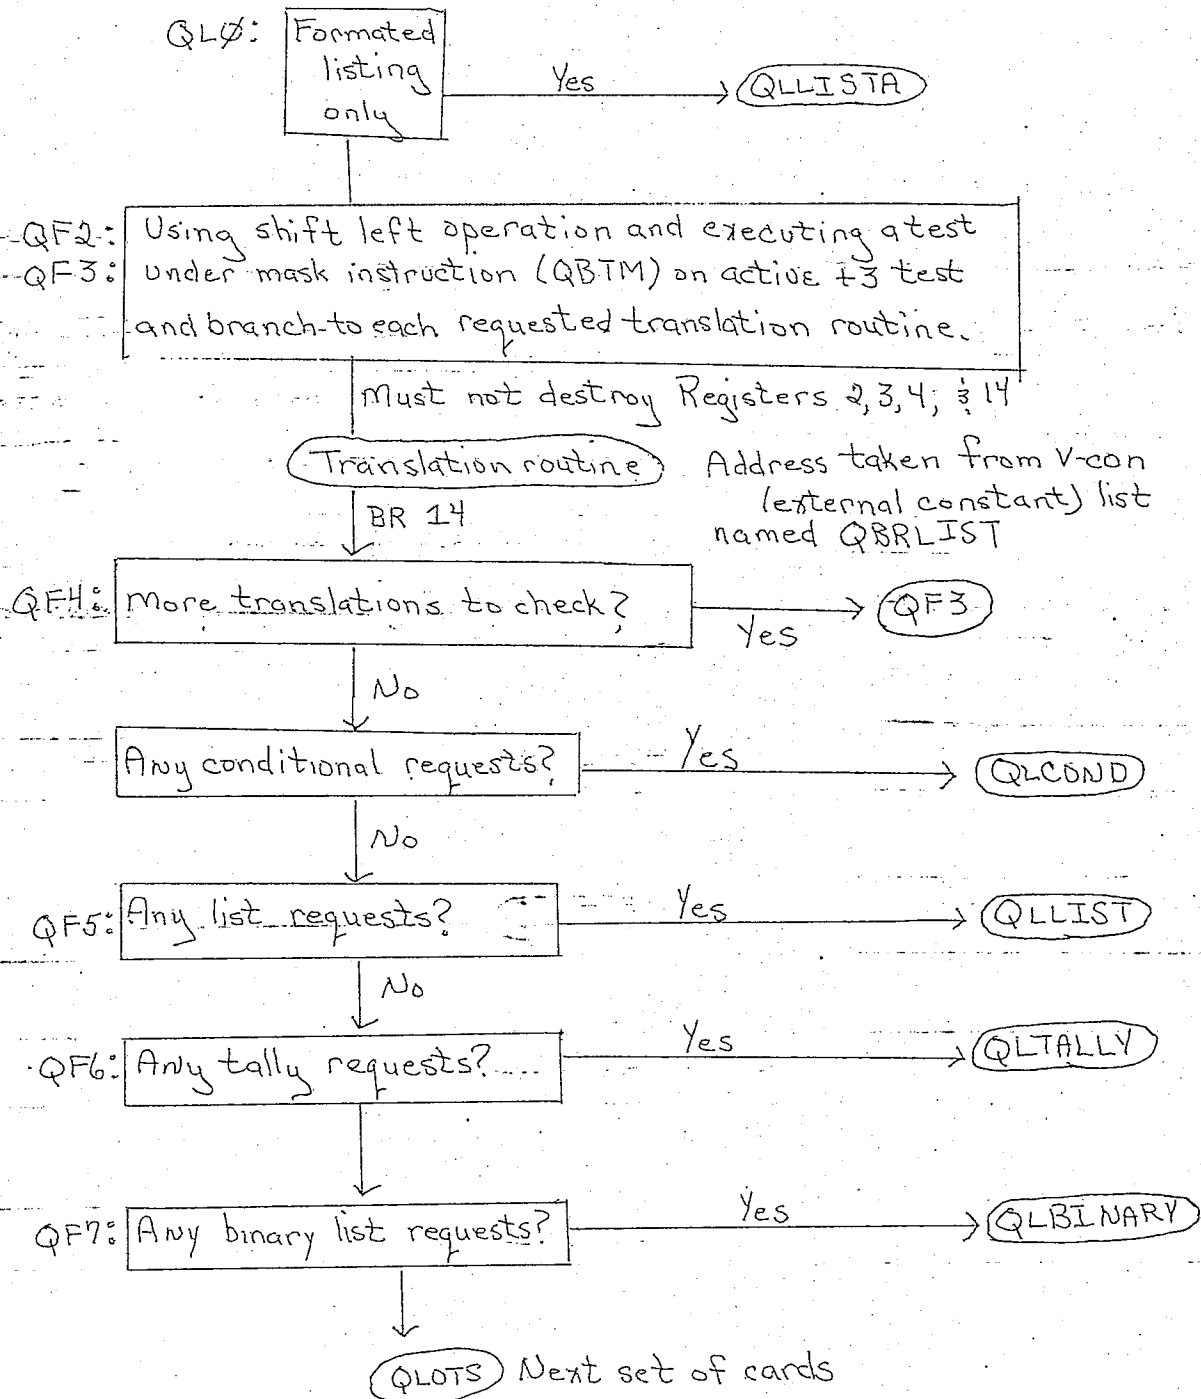 QLØ: Formated
listing
only
Yes
QLLISTA
QF2: Using shift left operation and executing a test
QF3: under mask instruction (QBTM) on active +3 test
and branch to each requested translation routine.
Must not destroy Registers 2,3,4, & 14
Translation routine
Address taken from V-con
(external constant) list
named QBRLIST
BR 14
QF4: More translations to check?
Yes
QF3
No
Any conditional requests?
Yes
QLCOND
No
QF5: Any list requests?
Yes
QLLIST
No
QF6: Any tally requests?
Yes
QLTALLY
QF7: Any binary list requests?
Yes
QLBINARY
QLOTS Next set of cards